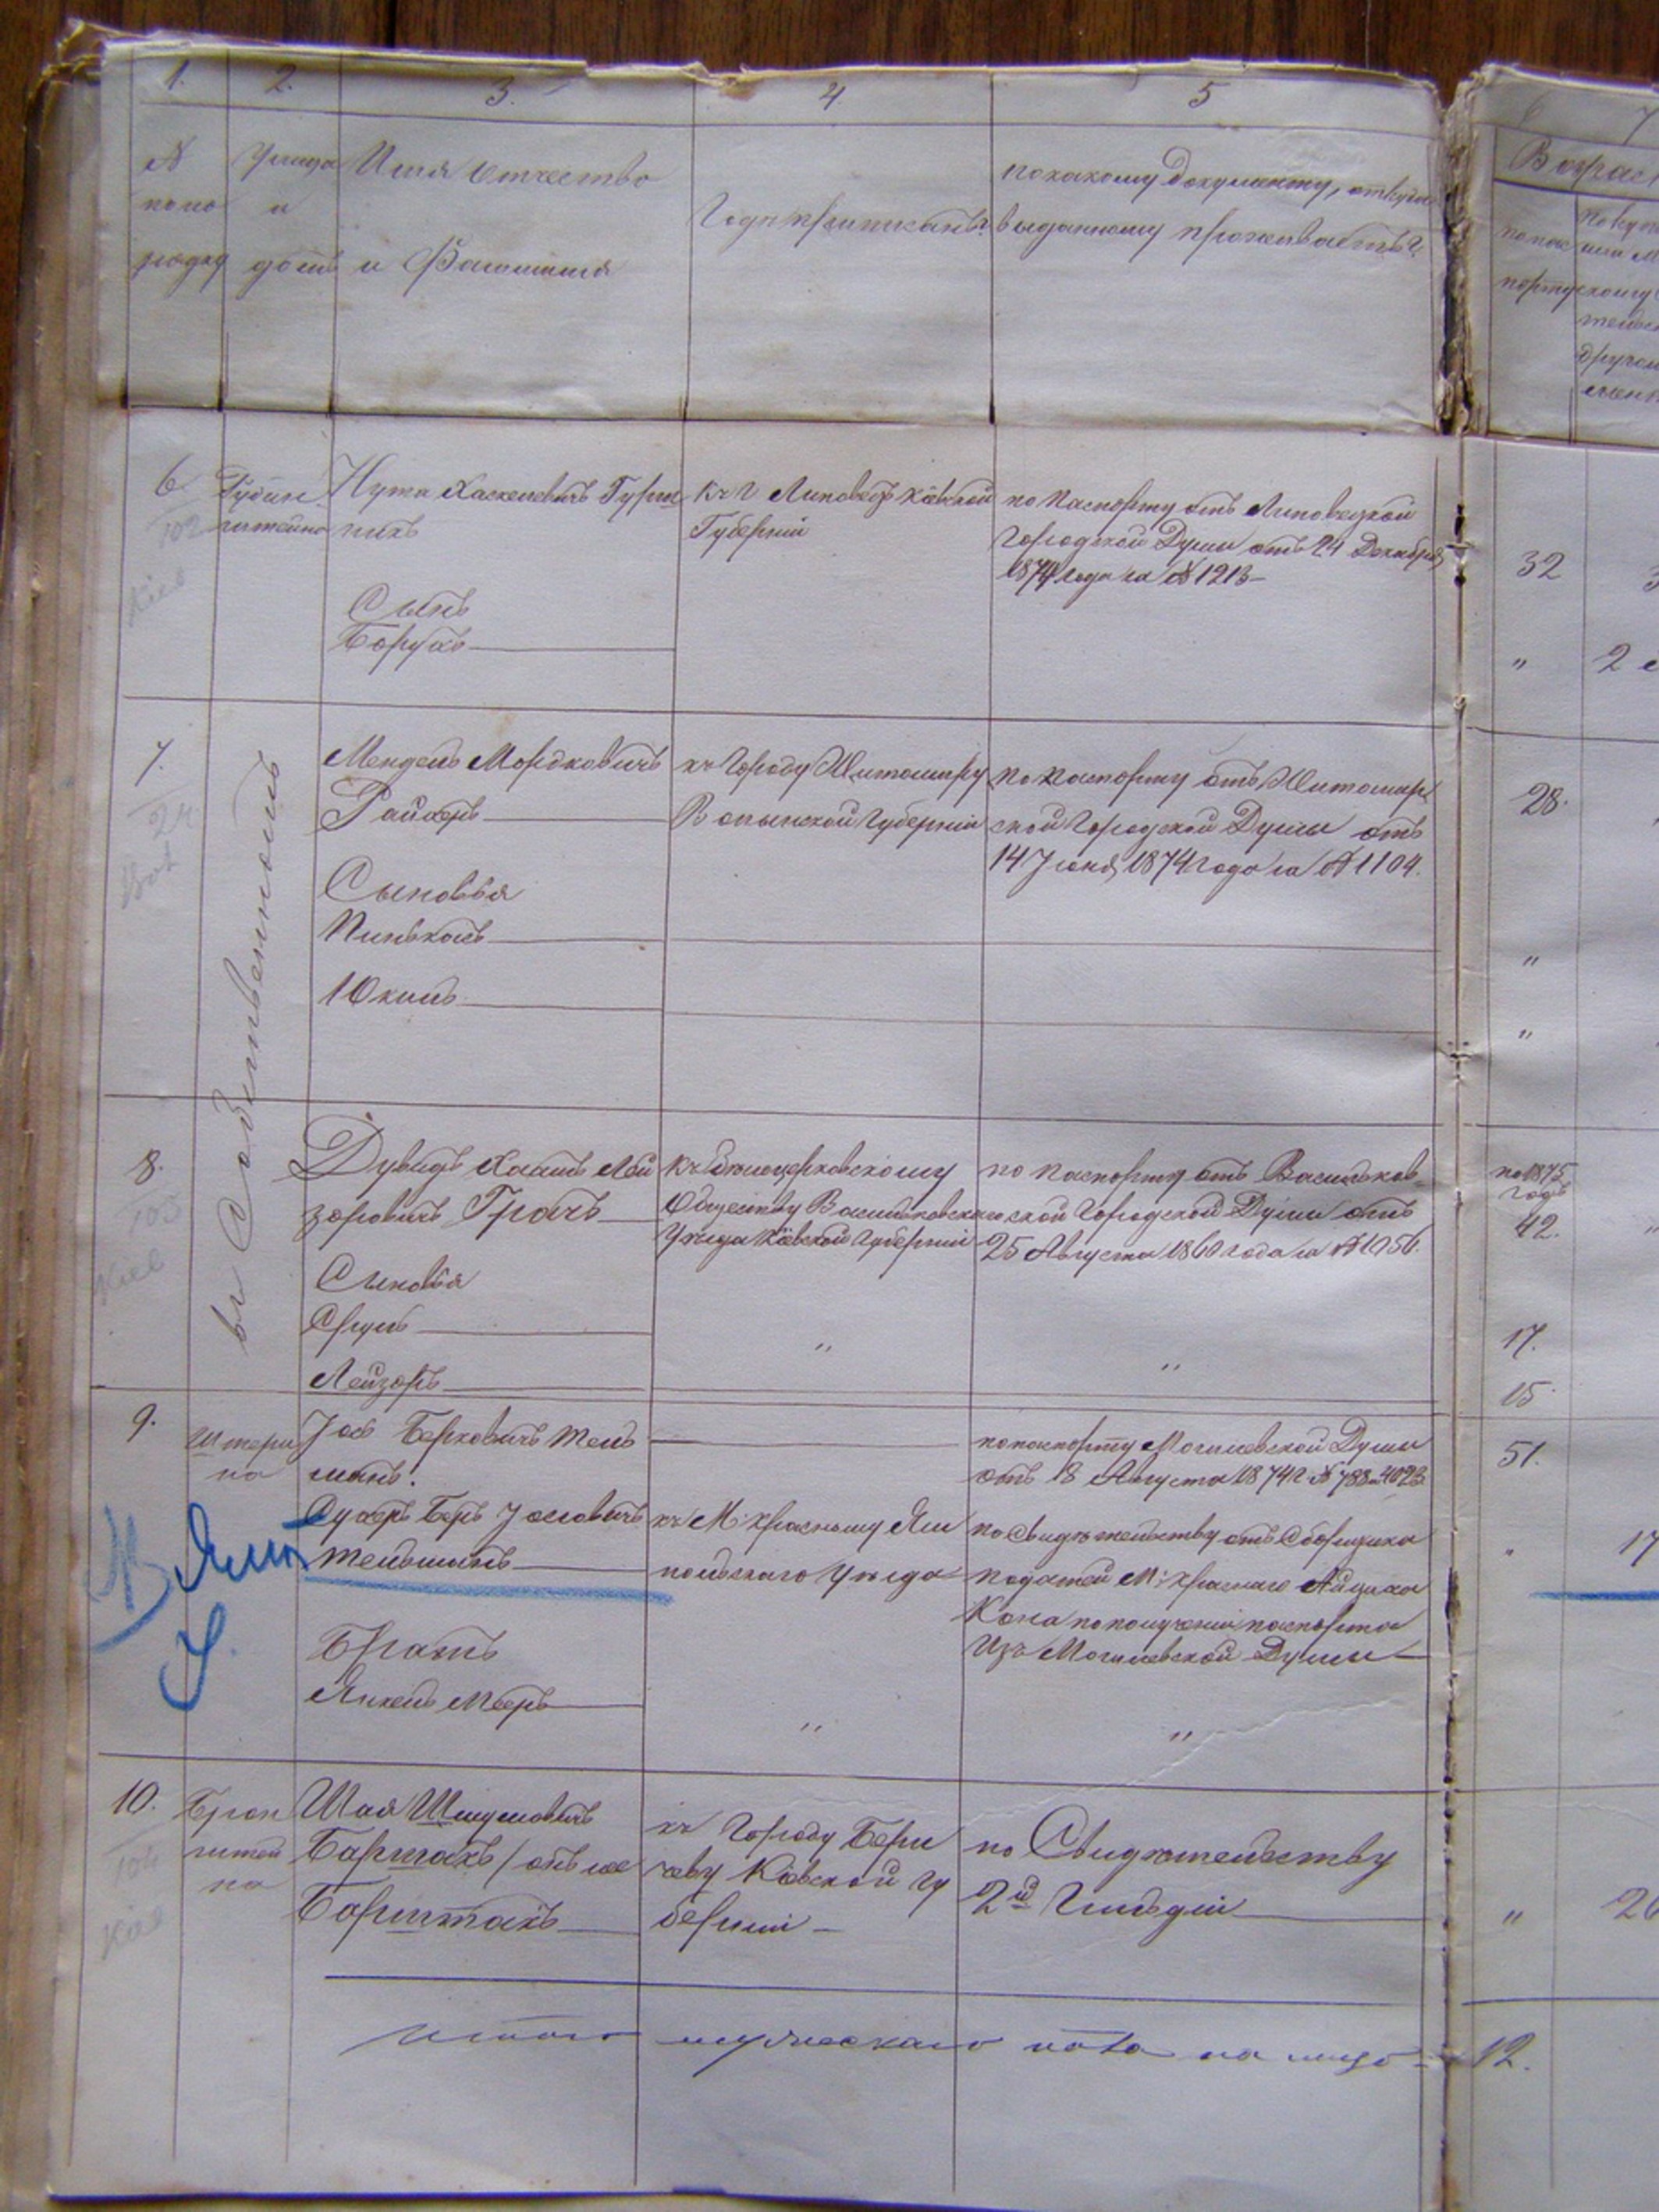 1.
2.
3.
4.
5
6
7
N
по по
рядку
Улица
и
домъ
Имя Отчество
и Фамилия
Годъ приписанъ?
по какому документу, откуда
выданному проживаетъ?
Возрас
по пас
порту
6.
102
Kiev
Нута Хаскелевичъ Гурш
никъ
Сынъ
Борухъ
Къ г Липовецъ Кіевской
Губерніи
по паспорту отъ Липовецкой
Городской Думы отъ 24 Декабря
1874 года за № 1213
32
"
2
7.
24
Vol
въ Собственномъ
Мендель Мордковичъ
Райхеръ
Сыновья
Пиньхасъ
Юкиль
къ Городу Житомиру
Волынской Губерніи
по паспорту отъ Житомир
ской Городской Думы отъ
14 Іюня 1874 года за № 1104.
28.
"
"
8.
103
Kiev
Дувидъ Хаимъ Лей
зоровичъ Грачъ
Сыновья
Сруль
Лейзоръ
Къ Бѣлоцерковскому
Обществу Васильковскаго
Уѣзда Кіевской Губерніи
"
по паспорту отъ Васильков
ской Городской Думы отъ
25 Августа 1860 года за № 1056.
"
по 1875
годъ
42.
17.
15
9.
Іосъ Берковичъ Тель
манъ.
Сухеръ Беръ Іосіовичъ
Тельманъ
Братъ
Янкель Мееръ
къ М. Красному Ям
польскаго Уѣзда
"
по паспорту Могилевской Думы
отъ 18 Августа 1874 г. № 788 и 4023
по Свидѣтельству отъ Сборщика
податей М. Краснаго Айзика
Кона по полученіи паспорта
изъ Могилевской Думы
"
51.
"
17
10.
104
Kiev
Брон
штей
на
Шая Шмулевичъ
Барштакъ / онъ же
Борштакъ
къ Городу Берди
чеву Кіевской Гу
берніи
по Свидѣтельству
2й Гильдіи
"
Итого мужескаго пола на лицо
12.